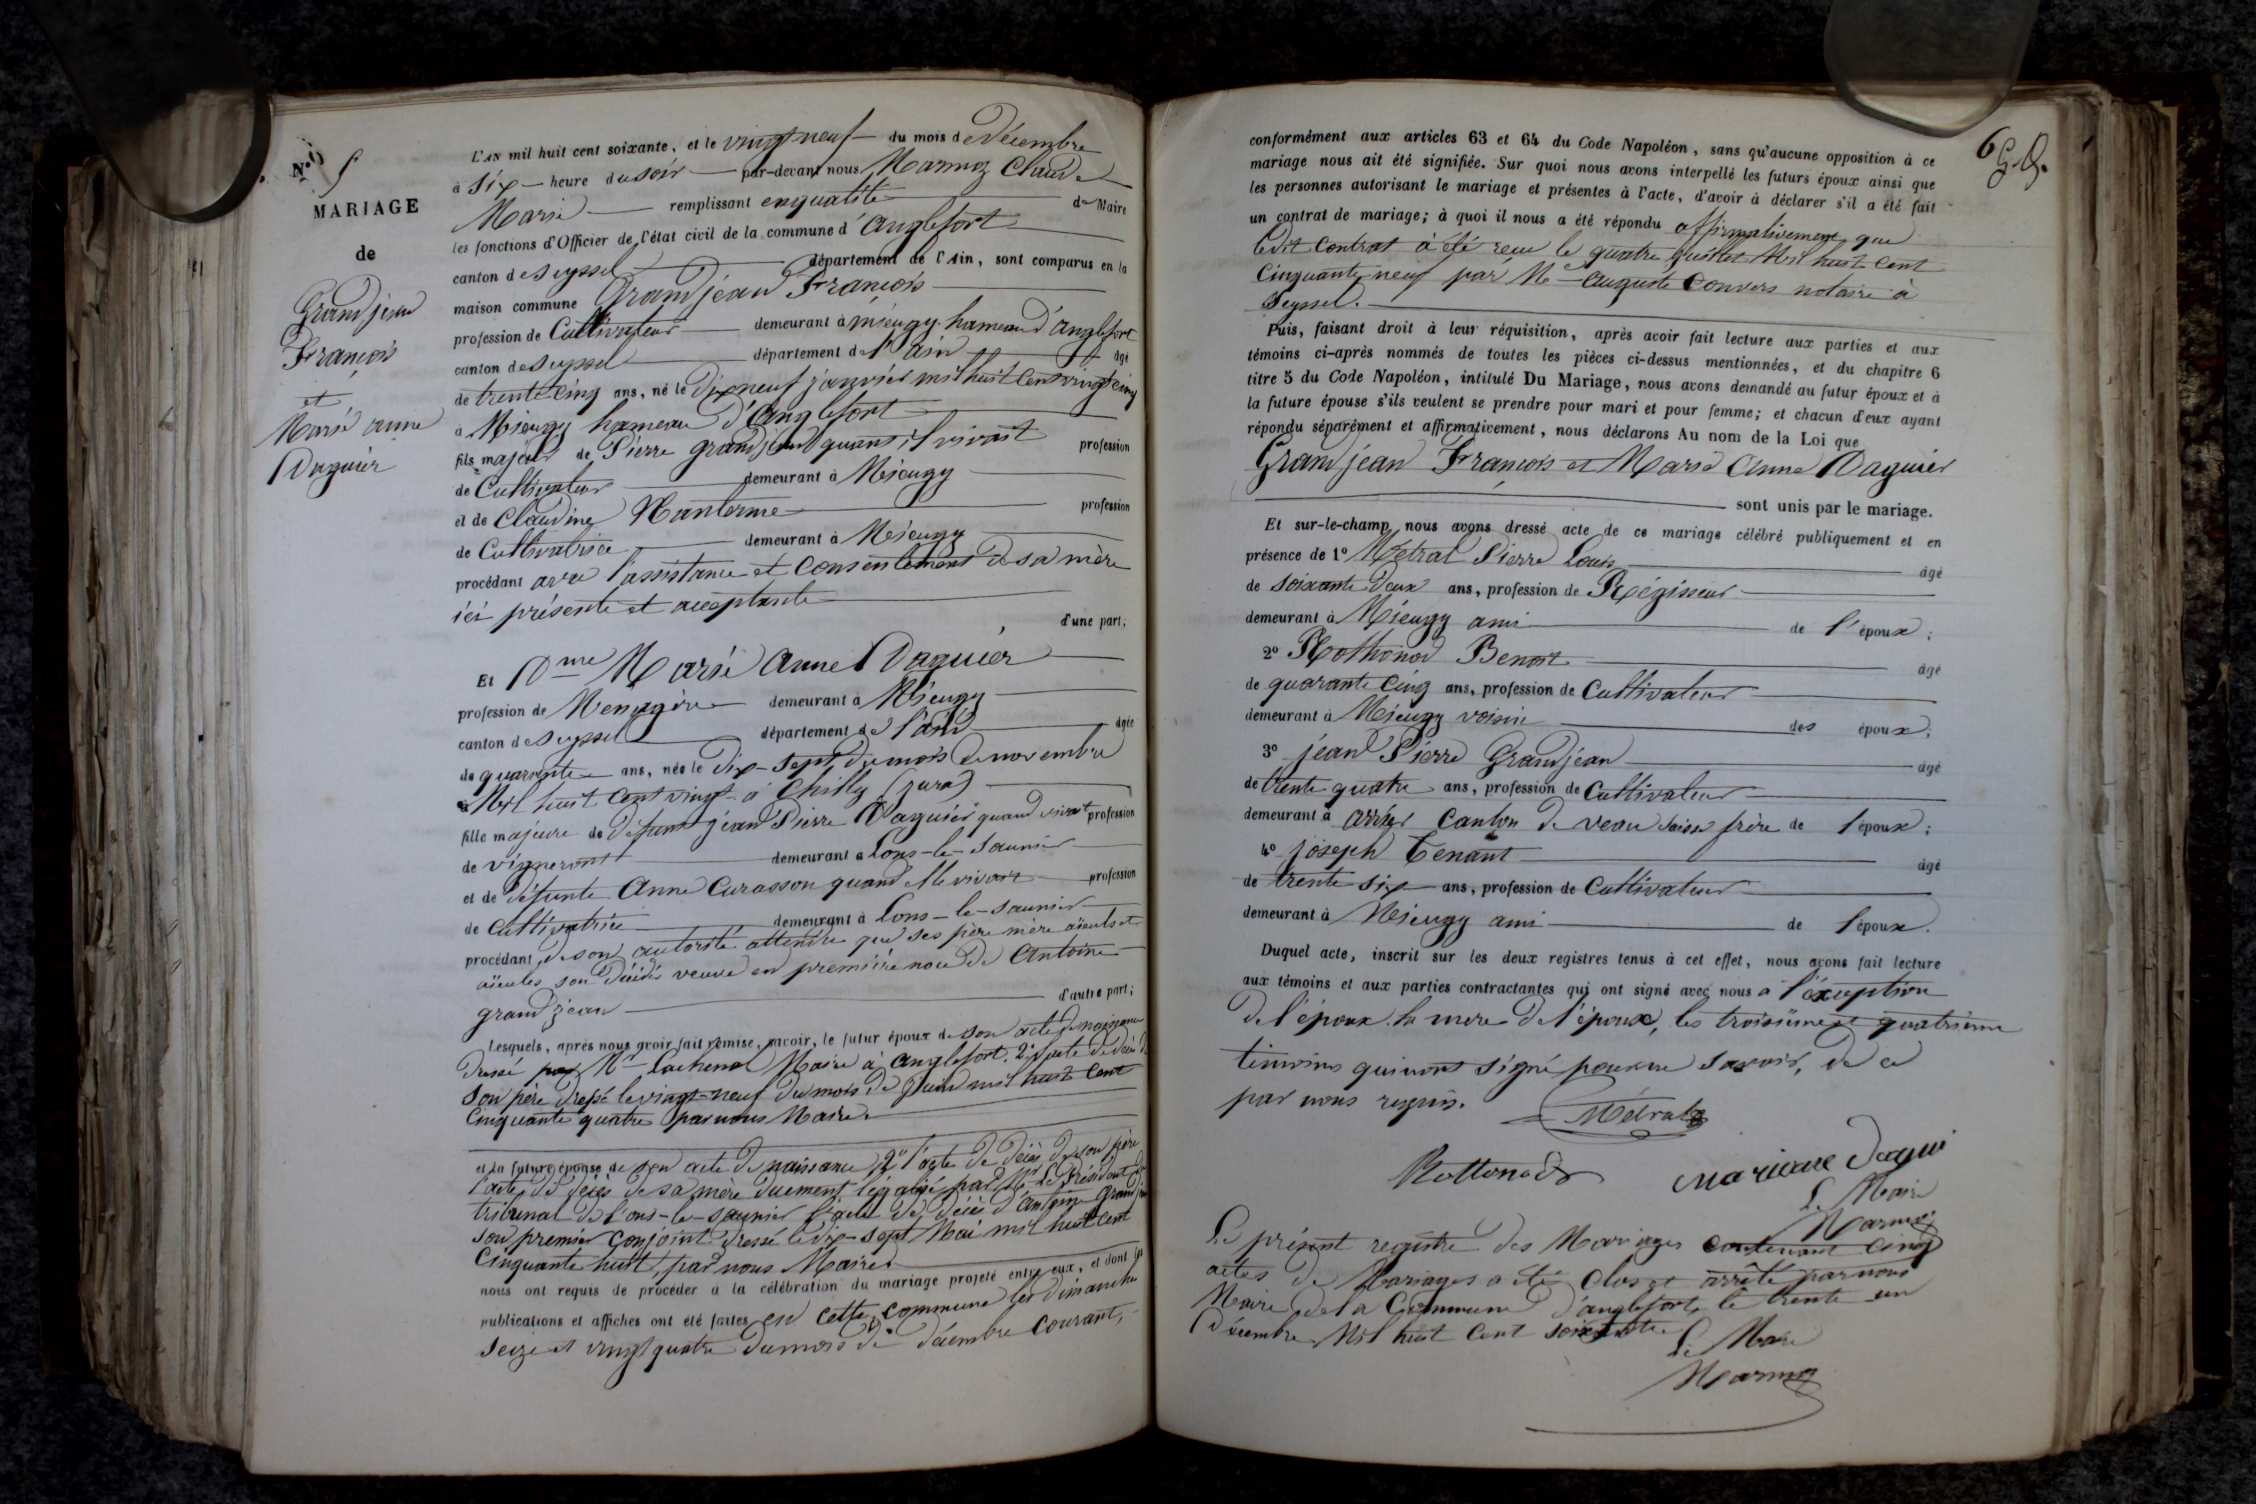 N° 5
MARIAGE
de
Grandjean
François
et
Marie anne
Daguier
L'AN mil huit cent soixante, et le vingt neuf du mois de Décembre
à six heure du soir par-devant nous Marmoz Claude
Marie remplissant en qualité de Maire
les fonctions d'Officier de l'état civil de la commune d'anglefort
canton de seyssel département de l'Ain, sont comparus en la
maison commune Grandjean François
profession de Cultivateur demeurant à mieugy hameau d'anglefort
canton de seyssel département de l'ain âgé
de trente cinq ans, né le dix neuf janvier mil huit cent vingt cinq
à Mieugy hameau d'anglefort
fils majeur de Pierre grandjean quant il vivait profession
de Cultivateur demeurant à Mieugy
et de Claudine Nanterme profession
de Cultivatrice demeurant à Mieugy
procédant avec l'assistance et Consentement de sa mère
ici présente et acceptante
d'une part;
Et Dme Marie anne Daguier
profession de Menagère demeurant à Mieugy
canton de seyssel département de l'ain âgée
de quarante ans, née le dix-sept du mois de novembre
Mil huit cent vingt à Chilly (jura)
fille majeure de défunt jean Pierre Daguier quand vivait profession
de vigneront demeurant à Lons-le-Saunier
et de défunte anne Curasson quand elle vivait profession
de cultivatrice demeurant à Lons-le-saunier
procédant de son autorité attendu que ses père mère aïeuls et
aïeules son décédés veuve en première noce de antoine
grandjean d'autre part;
Lesquels, après nous avoir fait remise, savoir, le futur époux de son acte de naissance
dressé par Mr Lachenal Maire à anglefort. 2° l'acte de décès de
son père dressé le vingt-neuf du mois de Juin mil huit cent
cinquante quatre par nous Maire.
et la future épouse de son acte de naissance, 2° l'acte de décès de son père
l'acte de décès de sa mère duement légalisé par Mr le Président du
tribunal de Lons-le-saunier l'acte de décès d'antoine grandjean
son premier conjoint dressé le dix-sept Mai mil huit cent
cinquante huit, par nous Maire.
nous ont requis de procéder à la célébration du mariage projeté entre eux, et dont les
publications et affiches ont été faites en cette commune les dimanche
seize et vingt quatre du mois de décembre courant,
6
conformément aux articles 63 et 64 du Code Napoléon, sans qu'aucune opposition à ce
mariage nous ait été signifiée. Sur quoi nous avons interpellé les futurs époux ainsi que
les personnes autorisant le mariage et présentes à l'acte, d'avoir à déclarer s'il a été fait
un contrat de mariage; à quoi il nous a été répondu affirmativement que
ledit contrat à été reçu le quatre juillet Mil huit cent
cinquante neuf par Me auguste Convers notaire à
Seyssel.
Puis, faisant droit à leur réquisition, après avoir fait lecture aux parties et aux
témoins ci-après nommés de toutes les pièces ci-dessus mentionnées, et du chapitre 6
titre 5 du Code Napoléon, intitulé Du Mariage, nous avons demandé au futur époux et à
la future épouse s'ils veulent se prendre pour mari et pour femme; et chacun d'eux ayant
répondu séparément et affirmativement, nous déclarons Au nom de la Loi que
Grandjean François et Marie anne Daguier
sont unis par le mariage.
Et sur-le-champ nous avons dressé acte de ce mariage célébré publiquement et en
présence de 1° Métral Pierre Louis âgé
de soixante deux ans, profession de Régisseur
demeurant à Mieugy ami de l'époux;
2° Rothonod Benoit âgé
de quarante cinq ans, profession de Cultivateur
demeurant à Mieugy voisin des époux;
3° jean Pierre Grandjean âgé
de trente quatre ans, profession de Cultivateur
demeurant à Canton de frère de l'époux;
4° joseph Tenant âgé
de trente six ans, profession de Cultivateur
demeurant à Mieugy ami de l'époux.
Duquel acte, inscrit sur les deux registres tenus à cet effet, nous avons fait lecture
aux témoins et aux parties contractantes qui ont signé avec nous à l'exception
de l'époux la mere de l'époux, les troisième et quatrieme
timoins qui n'ont signé pour ne savoir, de ce
par nous requis. Métral
Rottonod Mariane Dagui
Le Maire
Marmoz
Le présent registre des Mariages contenant cinq
actes de Mariages a été Clos et arrêté par nous
Maire de la Commune d'anglefort le trente un
Décembre Mil huit cent soixante.
Le Maire
Marmoz